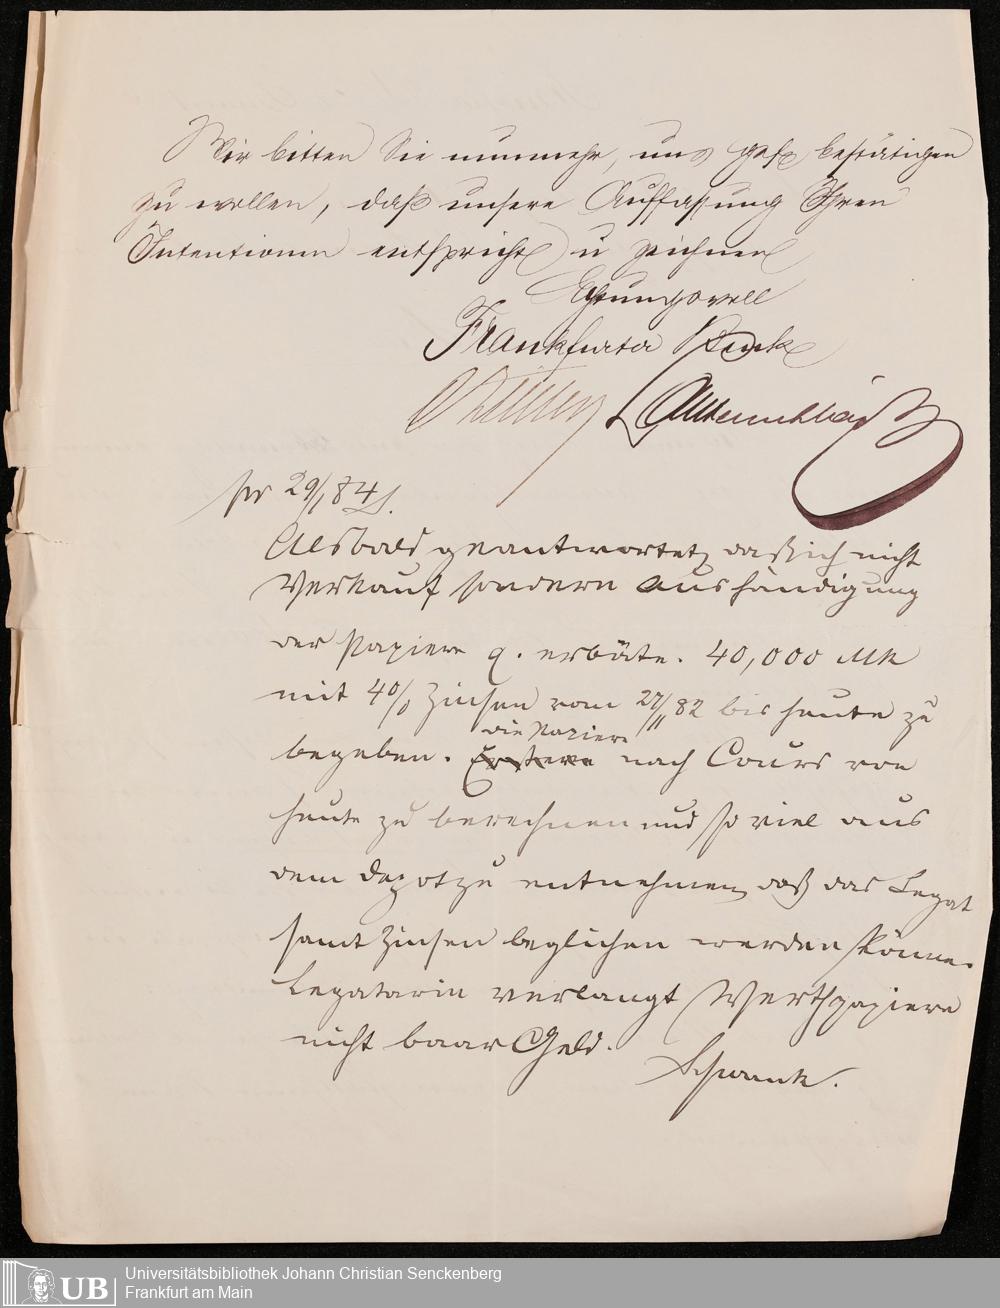 Wir bitten Sie nunmehr, uns gefl. bestätigen
zu wollen, daß unsere Auffassung Ihren
Intentionen entspricht u zeichnen
Achtungsvoll
Frankfurter Bank
pr 29/1 84
Alsbald geantwortet, daß ich nicht
Verkauf sondern Aushändigung
der Papiere q. erbäte. 40,000 Mk
mit 4% Zinsen vom 27/11 82 bis heute zu
die Papiere
begeben. Erstere nach Cours von
heute zu berechnen und so viel aus
dem Depot zu entnehmen, daß das Legat
samt Zinsen beglichen werden könne.
Legatarin verlangt Werthpapiere
nicht baar Geld.
Schwank.
UB
Universitätsbibliothek Johann Christian Senckenberg
Frankfurt am Main